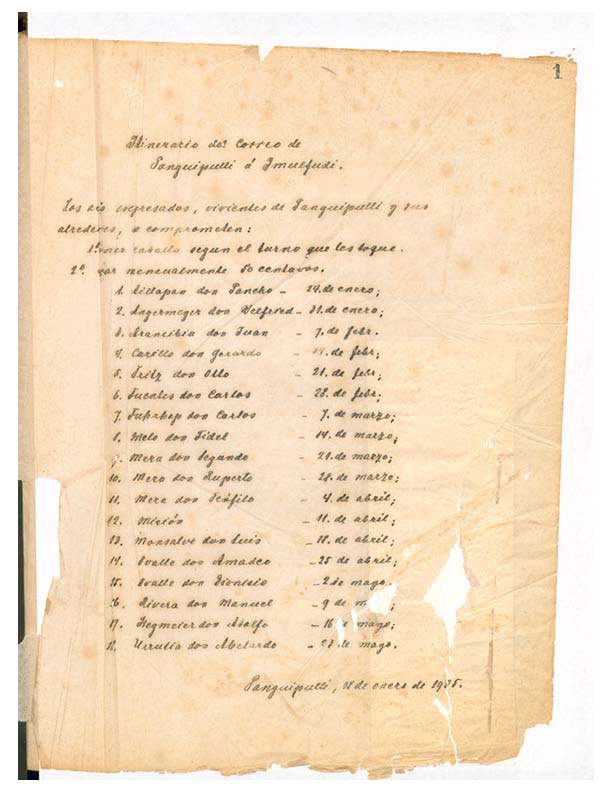 1
Itinerario del Correo de
Panguipulli á Imulfudi.
Los así espresados, vivientes de Panguipulli y sus
alrededores, se comprometen:
1º. poner caballo segun el turno que les toque.
2º. dar mensualmente 50 centavos.
1. Aillapan don Pancho - 24. de enero;
2. Angermeyer don Welfried - 31. de enero;
3. Arancibia don Juan - 7. de febr.
4. Carillo don Gerardo - 14. de febr;
5. Fritz don Otto - 21. de febr;
6. Fuentes don Carlos - 28. de febr;
7. don Carlos - 7. de marzo;
8. Melo don Fidel - 14. de marzo;
9. Mera don Segundo - 21. de marzo;
10. Mera don Ruperto - 28. de marzo;
11. Mera don Teófilo - 4. de abril;
12. Misión - 11. de abril;
13. Monsalve don Luis - 18. de abril;
14. Ovalle don Amadeo - 25 de abril;
15. Ovalle don Dionisio - 2 de mayo.
16. Rivera don Manuel - 9 de m ;
17. don Adolfo - 16 de mayo;
18. Urrutia don Abelardo - 23 de mayo.
Panguipulli, 18 de enero de 1925.